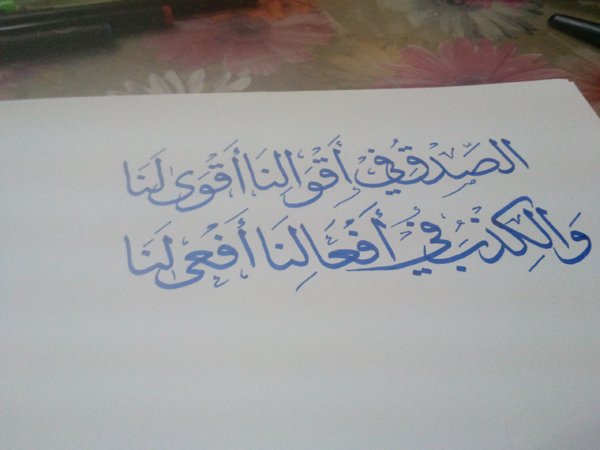 الصِّدْقُ فِي أَقْوَالِنَا أَقْوَى لَنَا
وَالكِذْبُ فِي أَفْعَالِنَا أَفْعَى لَنَا